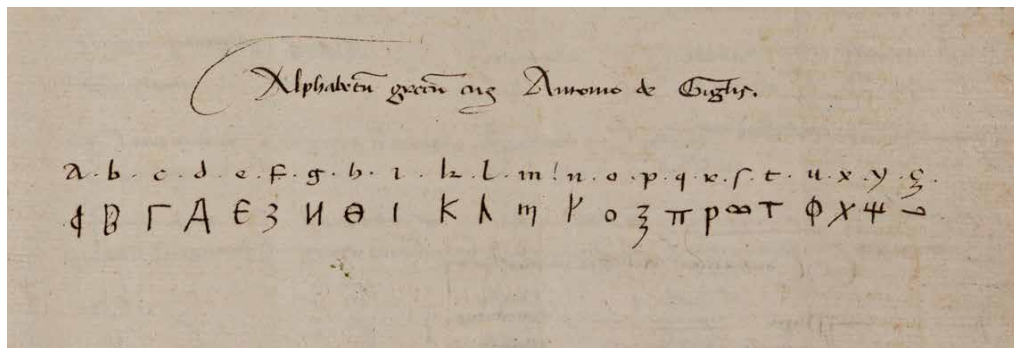 Alphabetū grecū cū Antonio de Giglis.
a . b . c . d . e . f . g . h . i . k . l . m . n . o . p . q . r . ſ . t . u . x . y . ç .
ϕ B Γ Δ Є З И Θ Ι Κ λ m ƴ ο ξ π ρ ω Τ Φ Χ Ψ